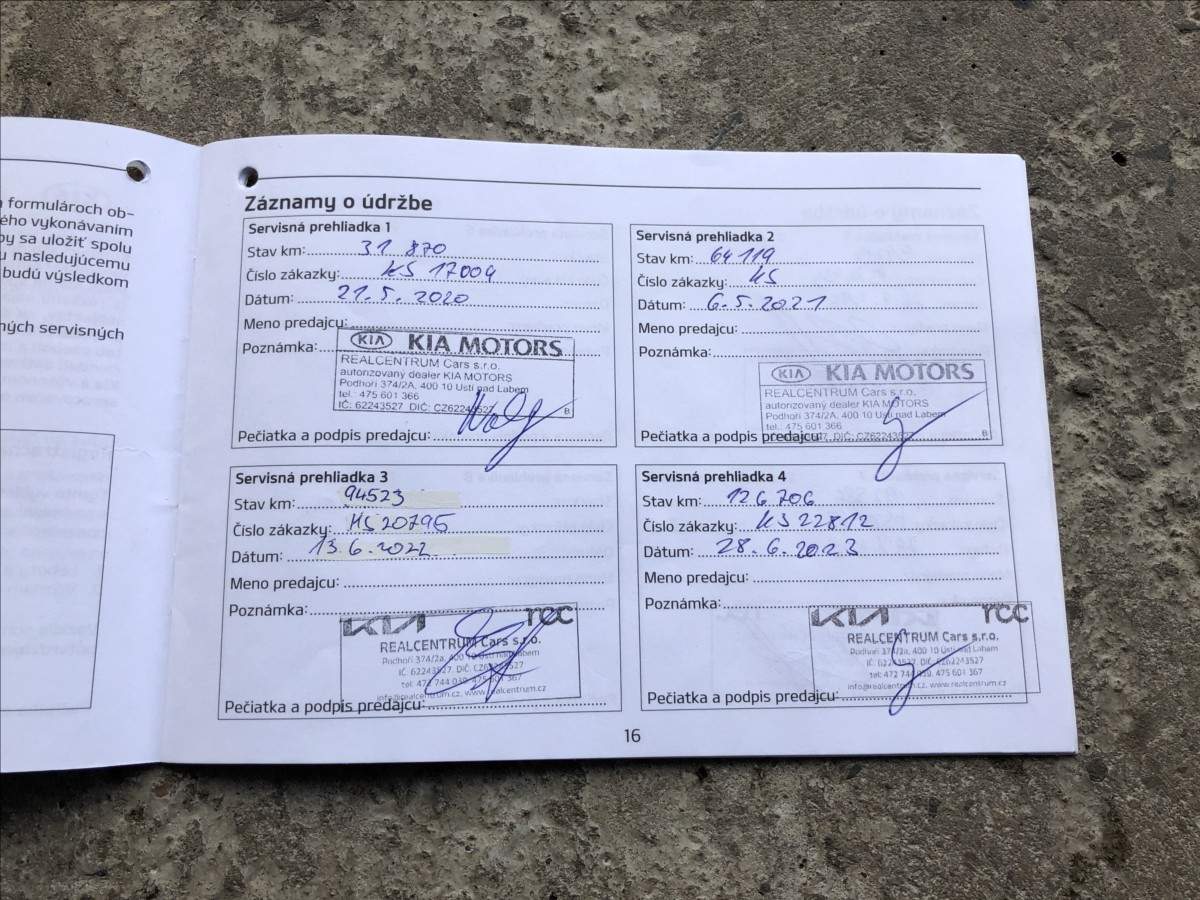 formulároch ob-
ého vykonávaním
by sa uložiť spolu
u nasledujúcemu
budú výsledkom
ných servisných
Záznamy o údržbe
Servisná prehliadka 1
Stav km: 31 870
Číslo zákazky: KS 17004
Dátum: 21.5.2020
Meno predajcu:
Poznámka:
KIA KIA MOTORS
REALCENTRUM Cars s.r.o.
autorizovaný dealer KIA MOTORS
Podhoří 374/2A, 400 10 Ústí nad Labem
tel.: 475 601 366
IČ: 62243527 DIČ: CZ62243527 B
Pečiatka a podpis predajcu:
Servisná prehliadka 2
Stav km: 64 119
Číslo zákazky: KS
Dátum: 6.5.2021
Meno predajcu:
Poznámka:
KIA KIA MOTORS
REALCENTRUM Cars s.r.o.
autorizovaný dealer KIA MOTORS
Podhoří 374/2A, 400 10 Ústí nad Labem
tel.: 475 601 366
DIČ: CZ62243527 B
Pečiatka a podpis predajcu:
Servisná prehliadka 3
Stav km: 94523
Číslo zákazky: KS20795
Dátum: 13.6.2022
Meno predajcu:
Poznámka:
KIA rcc
REALCENTRUM Cars s.r.o.
Podhoří 374/2a, 400 10 Ústí nad Labem
IČ: 62243527, DIČ: CZ62243527
tel: 472 744 039, 475 601 367
info@realcentrum.cz, www.realcentrum.cz
Pečiatka a podpis predajcu:
Servisná prehliadka 4
Stav km: 126 706
Číslo zákazky: KS22812
Dátum: 28.6.2023
Meno predajcu:
Poznámka:
KIA rcc
REALCENTRUM Cars s.r.o.
Podhoří 374/2a, 400 10 Ústí nad Labem
IČ: 62243527, DIČ: CZ62243527
tel: 472 744 039, 475 601 367
info@realcentrum.cz, www.realcentrum.cz
Pečiatka a podpis predajcu:
16